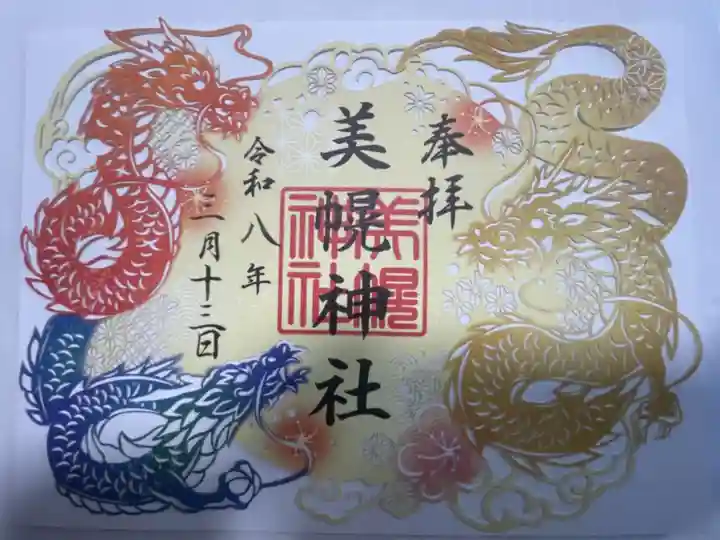 奉拝
美幌神社
令和八年
三月十三日
美幌
神社